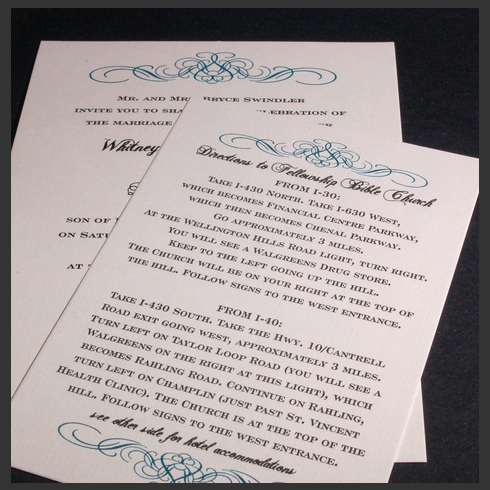 Mr. and Mrs. Bryce Swindler
invite you to
the marriage
Whitney
son of
on
at
Directions to Fellowship Bible Church
from I-30:
Take I-430 North. Take I-630 West,
which becomes Financial Centre Parkway,
which then becomes Chenal Parkway.
Go approximately 3 miles.
At the Wellington Hills Road light, turn right.
You will see a Walgreens Drug Store.
Keep to the left going up the hill.
The Church will be on your right at the top of
the hill. Follow signs to the west entrance.
from I-40:
Take I-430 South. Take the Hwy. 10/Cantrell
Road exit going west, approximately 3 miles.
Turn left on Taylor Loop Road (you will see a
Walgreens on the right at this light), which
becomes Rahling Road. Continue on Rahling,
turn left on Champlin (just past St. Vincent
Health Clinic). The Church is at the top of the
hill. Follow signs to the west entrance.
see other side for hotel accommodations